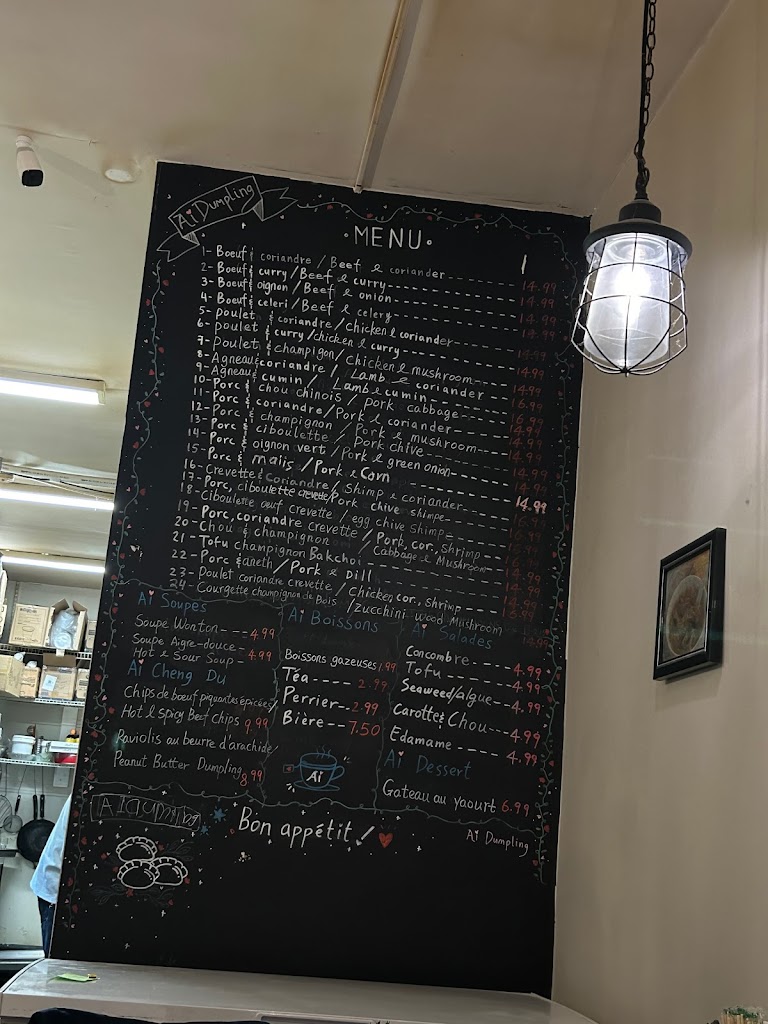 Ai Dumpling
MENU
1- Boeuf & coriandre / Beef & coriander 14.99
2- Boeuf & curry / Beef & curry 14.99
3- Boeuf & oignon / Beef & onion 14.99
4- Boeuf & celeri / Beef & celery 14.99
5- poulet & coriandre / chicken & coriander 14.99
6- poulet & curry / chicken & curry
7- Poulet & champignon / Chicken & mushroom 14.99
8- Agneau & coriandre / Lamb & coriander
9- Agneau & cumin / Lamb & cumin 16.99
10- Porc & chou chinois / pork cabbage 16.99
11- Porc & coriandre / Pork & coriander
12- Porc & champignon / Pork & mushroom 14.99
13- Porc & ciboulette / Pork chive
14- Porc & oignon vert / Pork & green onion 14.99
15- Porc & maiis / Pork & Corn 14.99
16- Crevette & Coriandre / Shimp & coriander
17- Porc, ciboulette crevette / Pork chive shimpe
18- Ciboulette oeuf Crevette / egg chive Shimp
19- Porc, coriandre crevette / Pork, cor, shrimp
20- Chou & champignon / Cabbage & Mushroom
21- Tofu champignon Bakchoi
22- Porc & aneth / Pork & Dill
23- Poulet coriandre crevette / Chicken, cor, shrimp
24- Courgette champignon de Bois / Zucchini wood Mushroom
Ai Soupes
Soupe Wonton 4.99
Soupe Aigre-douce
Hot & Sour Soup 4.99
Ai Cheng Du
Chips de boeuf piquantes épicées /
Hot & spicy Beef Chips 9.99
Raviolis au beurre d'arachide /
Peanut Butter Dumpling 8.99
Ai Boissons
Boissons gazeuses 1.99
Téa 2.99
Perrier 2.99
Bière 7.50
Ai
Ai Salades
Concombre 4.99
Tofu 4.99
Seaweed/algue 4.99
Carotte & Chou 4.99
Edamame 4.99
Ai Dessert
Gateau au yaourt 6.99
Bon appétit !
Ai Dumpling